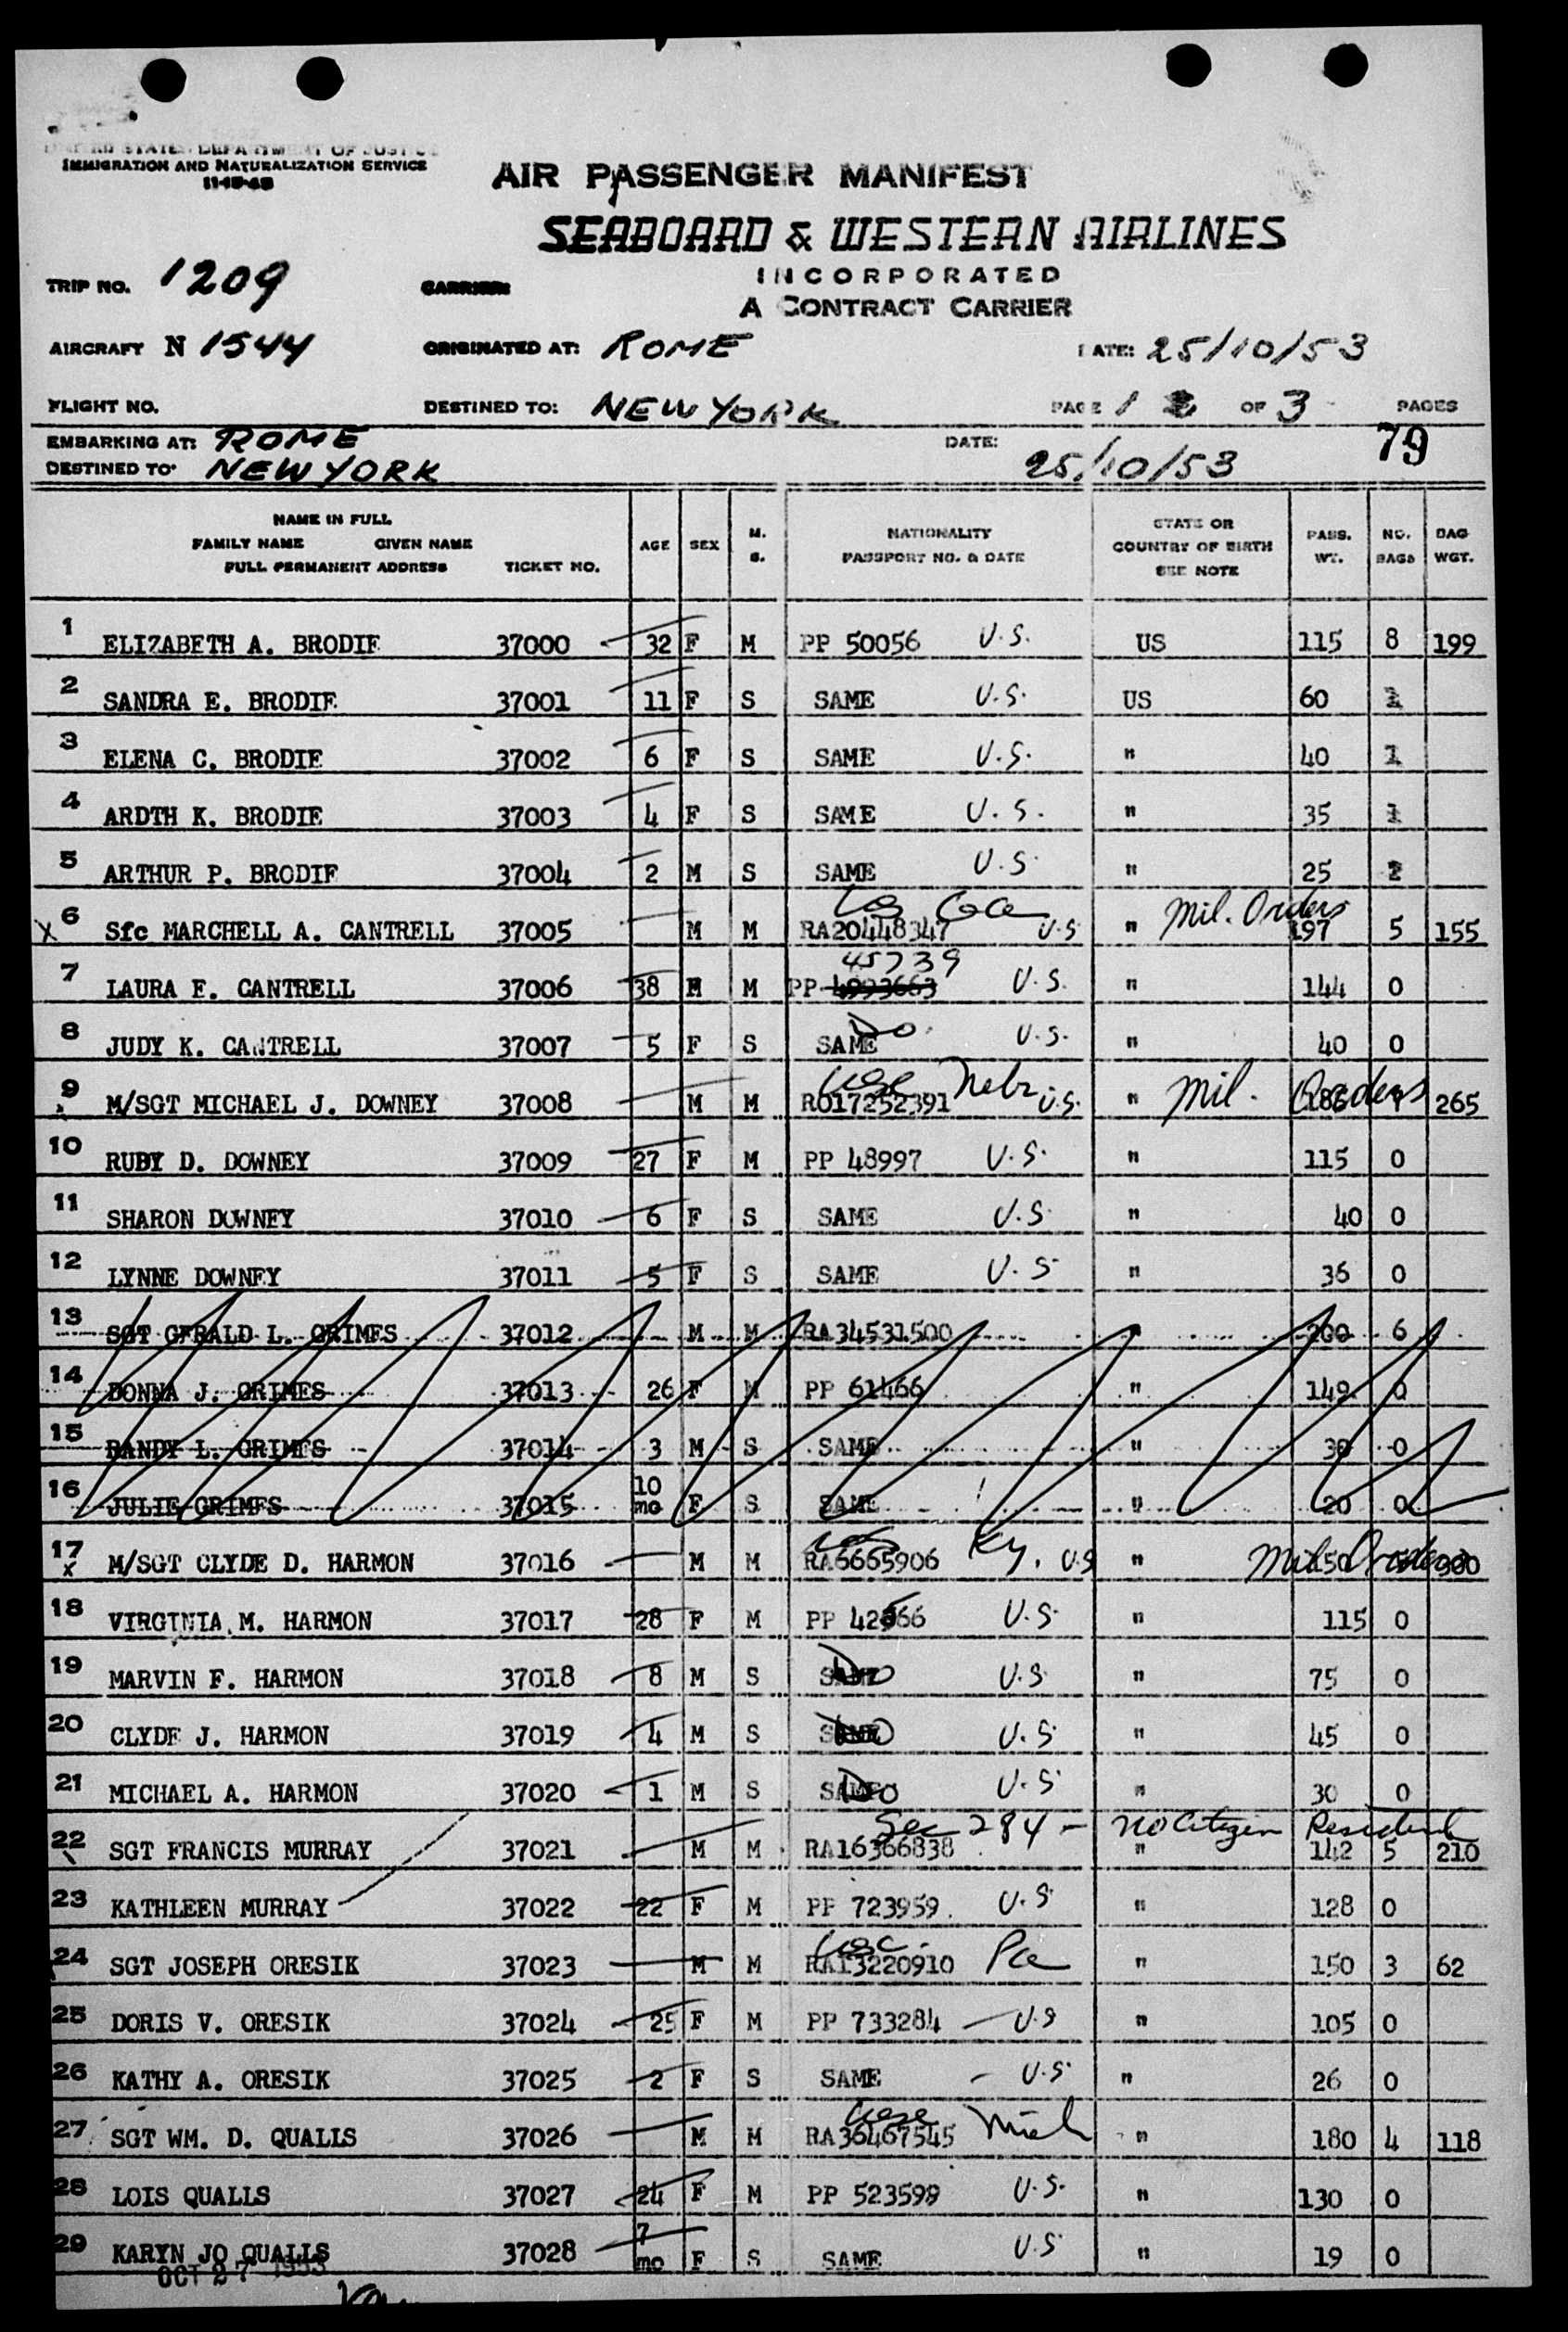 UNITED STATES DEPARTMENT OF JUSTICE
IMMIGRATION AND NATURALIZATION SERVICE
AIR PASSENGER MANIFEST
SEABOARD & WESTERN AIRLINES
INCORPORATED
A CONTRACT CARRIER
TRIP NO. 1209 CARRIER:
AIRCRAFT N 1544 ORIGINATED AT: ROME DATE: 25/10/53
FLIGHT NO. DESTINED TO: NEW YORK PAGE 1 OF 3 PAGES
EMBARKING AT: ROME DATE: 25/10/53 79
DESTINED TO: NEW YORK
NAME IN FULL
FAMILY NAME GIVEN NAME
FULL PERMANENT ADDRESS TICKET NO. AGE SEX M. S. NATIONALITY PASSPORT NO. & DATE STATE OR COUNTRY OF BIRTH SEE NOTE PASS. WT. NO. BAGS BAG WGT.
1 ELIZABETH A. BRODIE 37000 32 F M PP 50056 U.S. US 115 8 199
2 SANDRA E. BRODIE 37001 11 F S SAME U.S. US 60
3 ELENA C. BRODIE 37002 6 F S SAME U.S. " 40
4 ARDTH K. BRODIE 37003 4 F S SAME U.S. " 35
5 ARTHUR P. BRODIE 37004 2 M S SAME U.S. " 25
X 6 Sfc MARCHELL A. CANTRELL 37005 M M RA20448347 U.S " Mil. Orders 197 5 155
45739
7 LAURA E. CANTRELL 37006 38 M PP 4993663 U.S. " 144 0
8 JUDY K. CANTRELL 37007 5 F S SAME Do U.S. " 40 0
9 M/SGT MICHAEL J. DOWNEY 37008 M M RO17252391 Nebr U.S. " Mil. Orders 265
10 RUBY D. DOWNEY 37009 27 F M PP 48997 U.S. " 115 0
11 SHARON DOWNEY 37010 6 F S SAME U.S. " 40 0
12 LYNNE DOWNEY 37011 5 F S SAME U.S " 36 0
13 SGT GERALD L. GRIMES 37012 M M RA34531500 " 200 6
14 DONNA J. GRIMES 37013 26 F M PP 61466 " 149 0
15 RANDY L. GRIMES 37014 3 M S SAME " 30 0
16 JULIE GRIMES 37015 10 mo F S SAME " 20 0
17 X M/SGT CLYDE D. HARMON 37016 M M RA6665906 Ky. U.S " Mil Orders
18 VIRGINIA M. HARMON 37017 28 F M PP 42566 U.S. " 115 0
19 MARVIN F. HARMON 37018 8 M S Do U.S " 75 0
20 CLYDE J. HARMON 37019 4 M S Do U.S " 45 0
21 MICHAEL A. HARMON 37020 1 M S Do U.S " 30 0
Sec 284 - no Citizen Resident
22 SGT FRANCIS MURRAY 37021 M M RA16366838 " 142 5 210
23 KATHLEEN MURRAY 37022 22 F M PP 723959 U.S " 128 0
24 SGT JOSEPH ORESIK 37023 M M RA13220910 Pa " 150 3 62
25 DORIS V. ORESIK 37024 25 F M PP 733284 U.S " 105 0
26 KATHY A. ORESIK 37025 2 F S SAME U.S " 26 0
27 SGT WM. D. QUALLS 37026 M M RA36467545 Mich " 180 4 118
28 LOIS QUALLS 37027 24 F M PP 523599 U.S. " 130 0
29 KARYN JO QUALLS 37028 7 mo F S SAME U.S " 19 0
OCT 27 1953